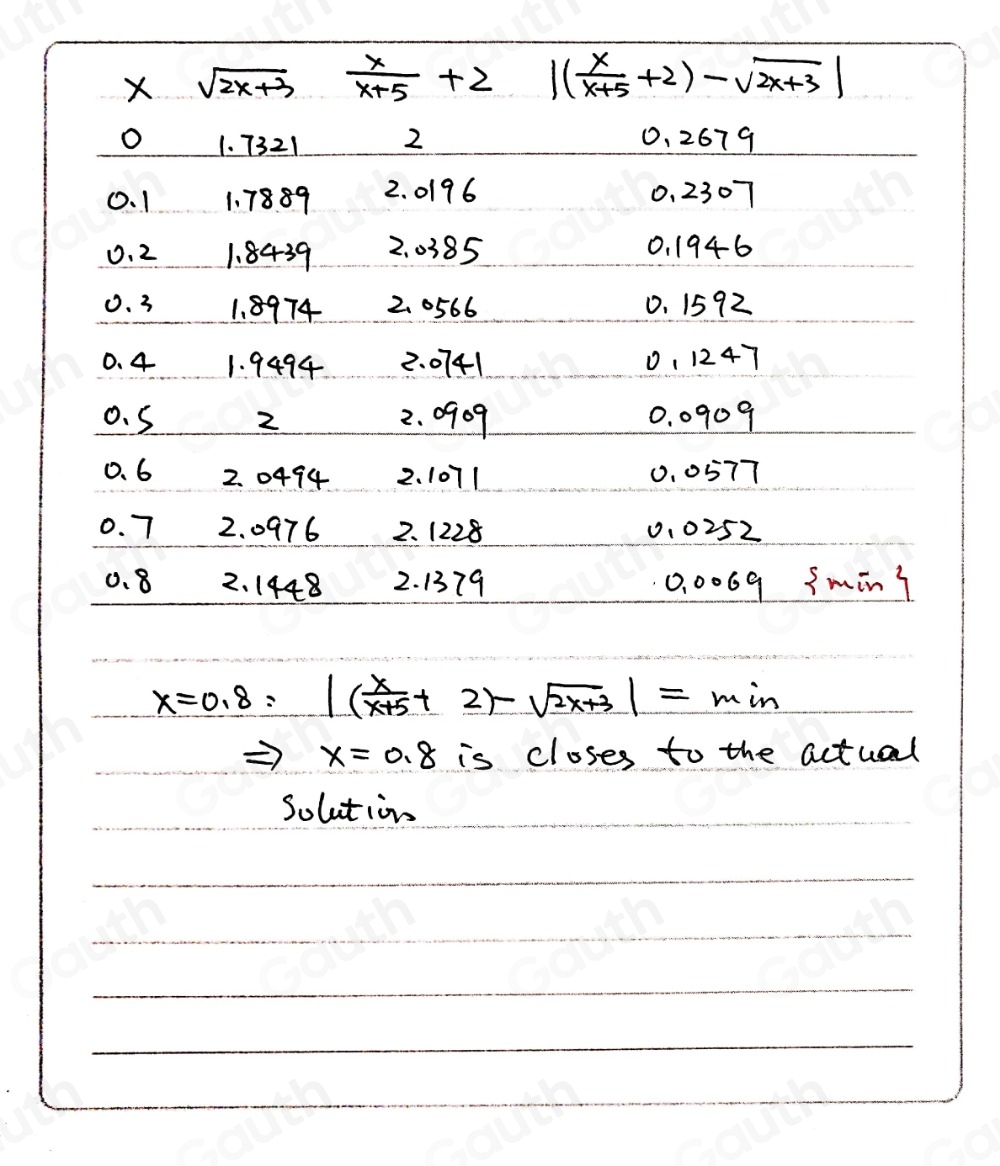 x √(2x+3) x/(x+5) + 2 |(x/(x+5) + 2) - √(2x+3)|
0 1.7321 2 0.2679
0.1 1.7889 2.0196 0.2307
0.2 1.8439 2.0385 0.1946
0.3 1.8974 2.0566 0.1592
0.4 1.9494 2.0741 0.1247
0.5 2 2.0909 0.0909
0.6 2.0494 2.1071 0.0577
0.7 2.0976 2.1228 0.0252
0.8 2.1448 2.1379 0.0069 {min}
x=0.8: |(x/(x+5) + 2) - √(2x+3)| = min
⇒ x = 0.8 is closes to the actual
Solution